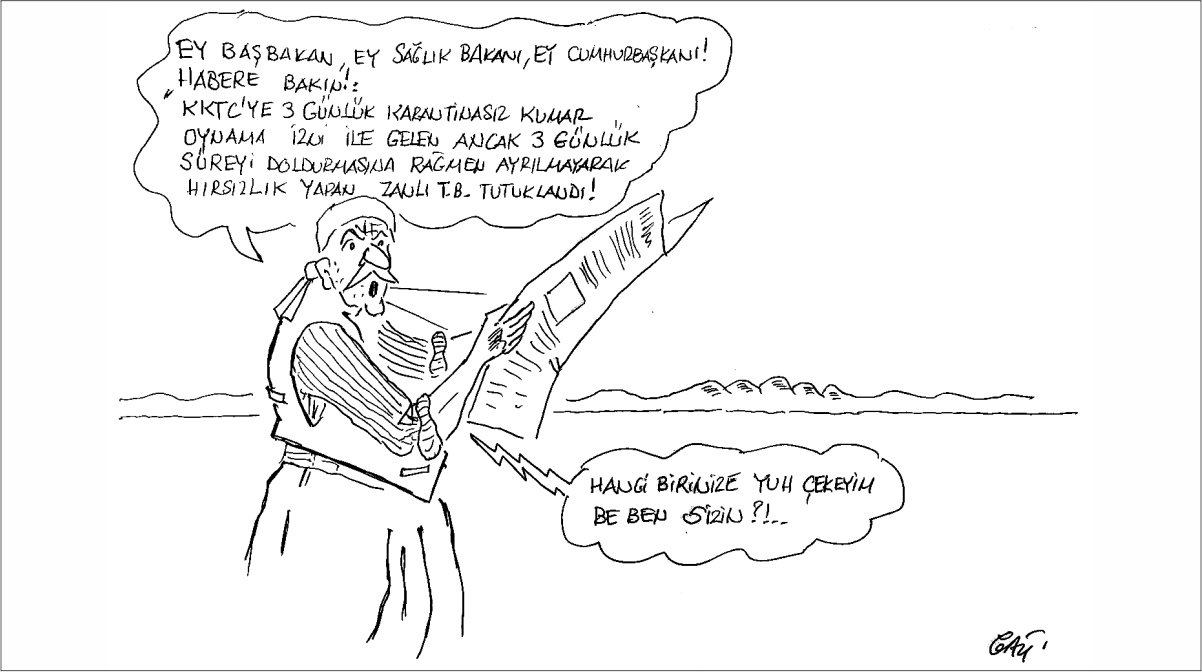 EY BAŞBAKAN, EY SAĞLIK BAKANI, EY CUMHURBAŞKANI!
HABERE BAKIN!:
KKTC'YE 3 GÜNLÜK KARANTİNASIZ KUMAR
OYNAMA İZNİ İLE GELEN ANCAK 3 GÜNLÜK
SÜREYİ DOLDURMASINA RAĞMEN AYRILMAYARAK
HIRSIZLIK YAPAN ZANLI T.B. TUTUKLANDI!
HANGİ BİRİNİZE YUH ÇEKEYİM
BE BEN SİZİN?!..